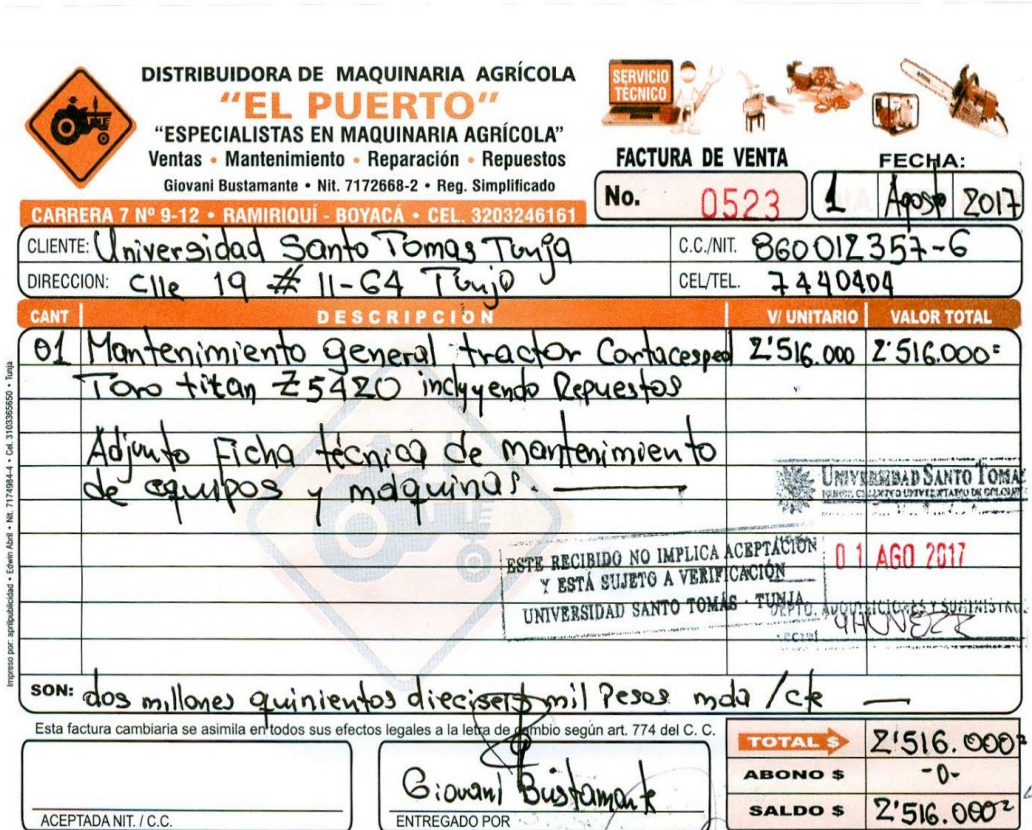 DISTRIBUIDORA DE MAQUINARIA AGRÍCOLA
"EL PUERTO"
"ESPECIALISTAS EN MAQUINARIA AGRÍCOLA"
Ventas • Mantenimiento • Reparación • Repuestos
Giovani Bustamante • Nit. 7172668-2 • Reg. Simplificado
CARRERA 7 Nº 9-12 • RAMIRIQUÍ - BOYACÁ • CEL. 3203246161
SERVICIO
TÉCNICO
FACTURA DE VENTA
No. 0523
FECHA:
1 Agosto 2017
CLIENTE: Universidad Santo Tomas Tunja
C.C./NIT. 860012357-6
DIRECCION: Clle 19 # 11-64 Tunja
CEL/TEL. 7440404
CANT DESCRIPCION V/ UNITARIO VALOR TOTAL
01 Mantenimiento general tractor Cortacesped 2'516.000 2'516.000=
Toro titan Z5420 incluyendo Repuestos
Adjunto Ficha técnica de mantenimiento
de equipos y maquinas.
UNIVERSIDAD SANTO TOMAS
ESTE RECIBIDO NO IMPLICA ACEPTACIÓN
Y ESTÁ SUJETO A VERIFICACIÓN
UNIVERSIDAD SANTO TOMÁS - TUNJA
01 AGO 2017
DEPTO. ADQUISICIONES Y SUMINISTROS
SON: dos millones quinientos dieciseis mil Pesos mda /cte
Esta factura cambiaria se asimila en todos sus efectos legales a la letra de cambio según art. 774 del C. C.
ACEPTADA NIT. / C.C.
Giovani Bustamante
ENTREGADO POR
TOTAL $ 2'516.000=
ABONO $ -0-
SALDO $ 2'516.000=
Impreso por: aprilpublicidad • Edwin Abril • Nit. 7174984-4 • Cel. 3103365650 • Tunja